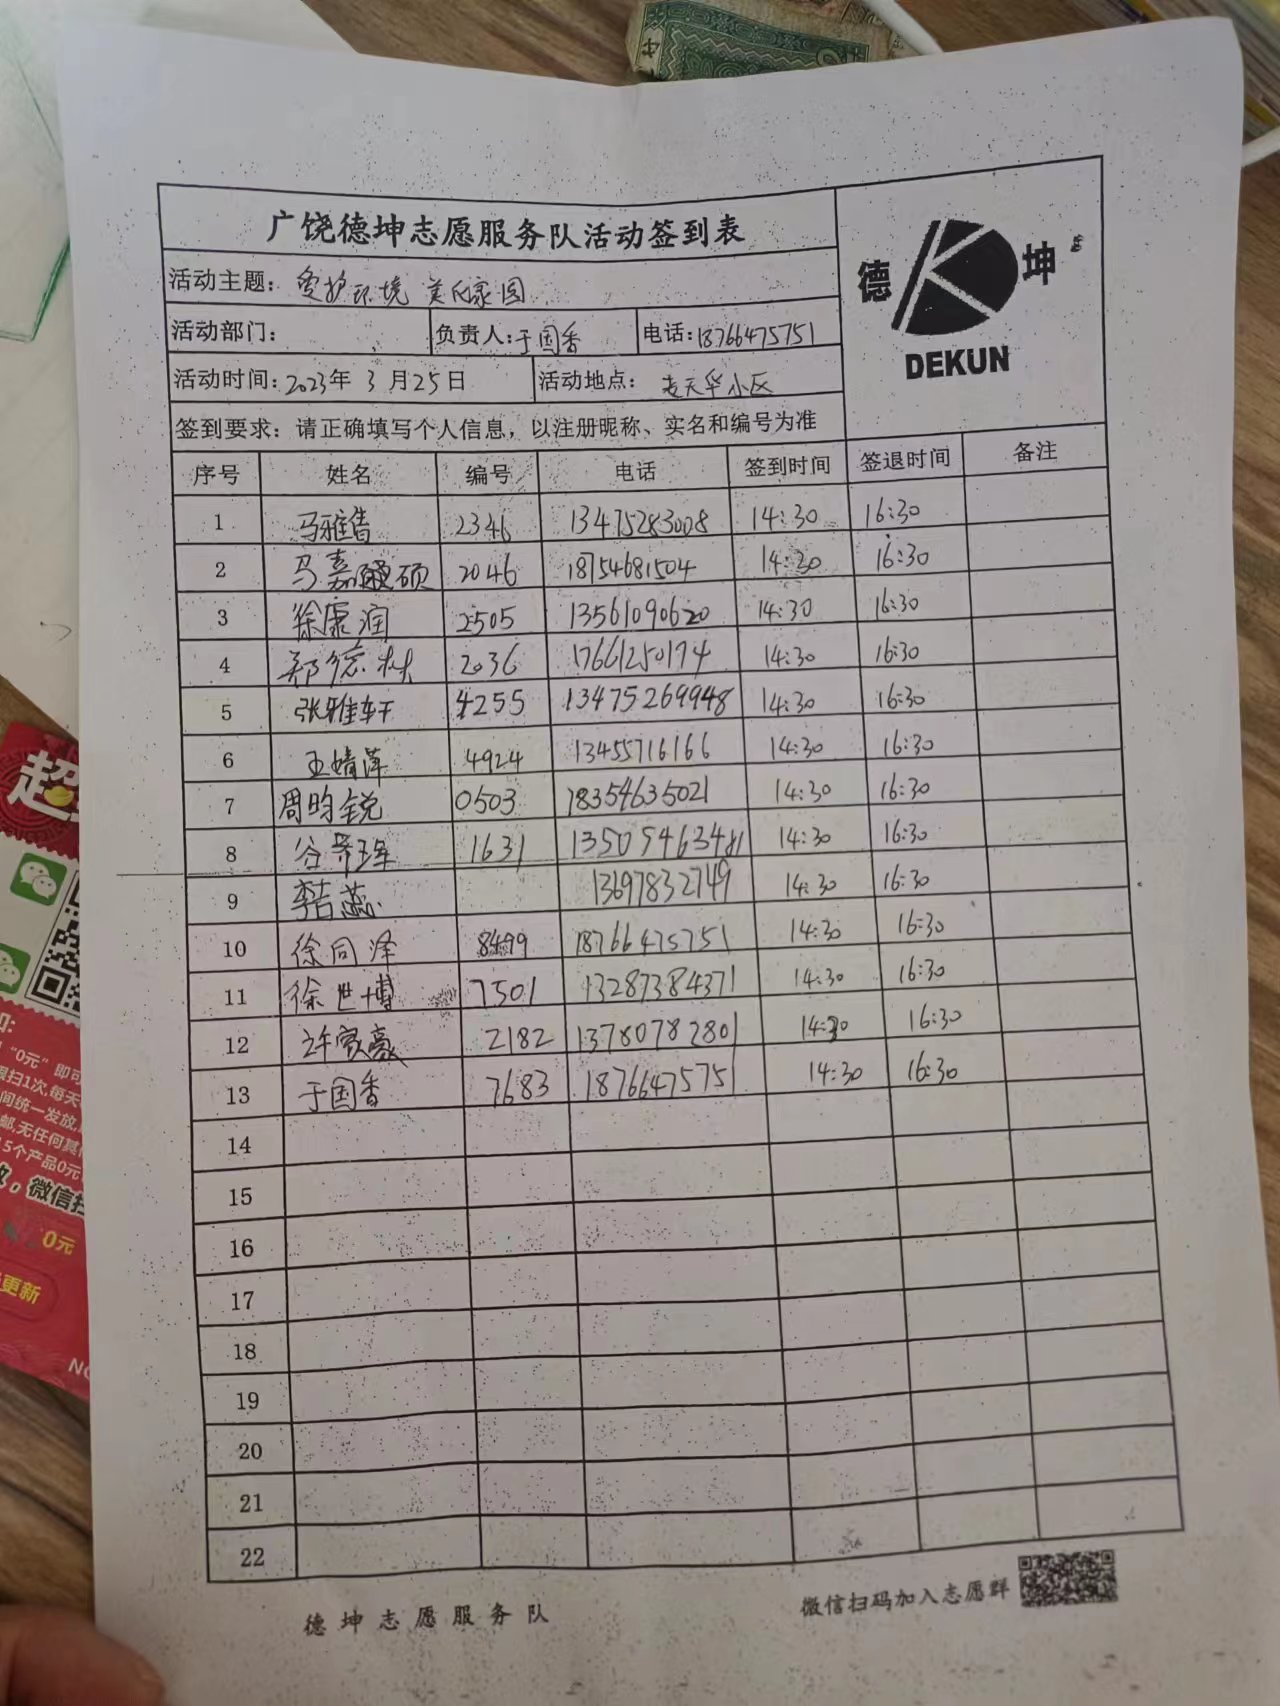 广饶德坤志愿服务队活动签到表
德 坤
DEKUN
活动主题：爱护环境 美化家园
活动部门： 负责人：于国香 电话：18766475751
活动时间：2023年 3月25日 活动地点： 天华小区
签到要求：请正确填写个人信息，以注册昵称、实名和编号为准
序号 姓名 编号 电话 签到时间 签退时间 备注
1 马雅 2346 13475283008 14:30 16:30
2 马嘉硕 2046 18754681504 14:30 16:30
3 徐康润 2505 13561090620 14:30 16:30
4 郑德林 2036 17661250174 14:30 16:30
5 张雅轩 4255 13475269948 14:30 16:30
6 王婧萍 4924 13455716166 14:30 16:30
7 周昀锐 0503 18354635021 14:30 16:30
8 谷 1631 13505463481 14:30 16:30
9 李吉蕊 13697832749 14:30 16:30
10 徐同泽 8499 18766475751 14:30 16:30
11 徐世博 7501 13287384371 14:30 16:30
12 许家豪 2182 13780782801 14:30 16:30
13 于国香 7683 18766475751 14:30 16:30
14
15
16
17
18
19
20
21
22
德坤志愿服务队 微信扫码加入志愿群
超
"0元"即可
扫1次,每天
间统一发放
无任何其
15个产品0元
微信扫
0元
更新